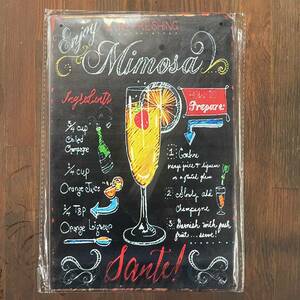 Enjoy
REFRESHING
Mimosa
Ingredients
3/4 cup
Chilled
Champagne
1/4 cup
Orange Juice
1/4 TSP
Orange Liqueur
HOW TO
Prepare:
1. Combine
orange juice & liqueur
in a fluted glass
2. Slowly add
champagne
3. Garnish with fresh
fruit... serve!
Santé!